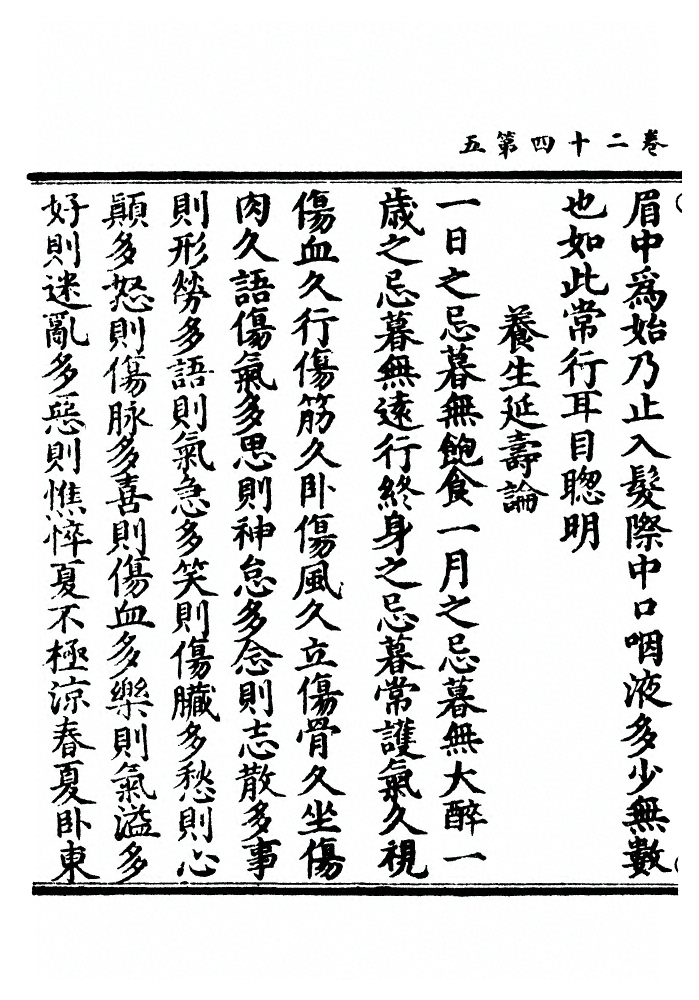 卷二十四第五
眉中爲始乃止入髮際中口咽液多少無數
也如此常行耳目聰明
養生延壽論
一日之忌暮無飽食一月之忌暮無大醉一
歲之忌暮無遠行終身之忌暮常護氣久視
傷血久行傷筋久卧傷風久立傷骨久坐傷
肉久語傷氣多思則神怠多念則志散多事
則形勞多語則氣急多笑則傷臟多愁則心
顚多怒則傷脉多喜則傷血多樂則氣溢多
好則迷亂多惡則憔悴夏不極涼春夏卧東